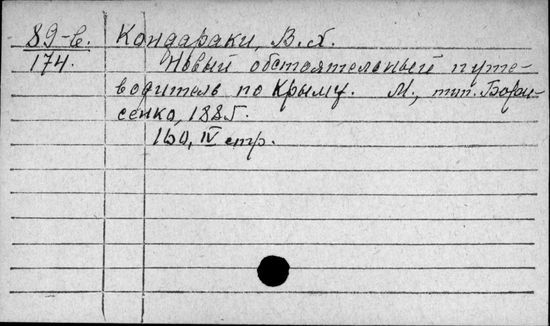 89-в. Кондараки, В.Х.
174. Новый обстоятельный путе-
водитель по Крыму. М., тип. Бори-
сенко, 1885.
160, IV стр.